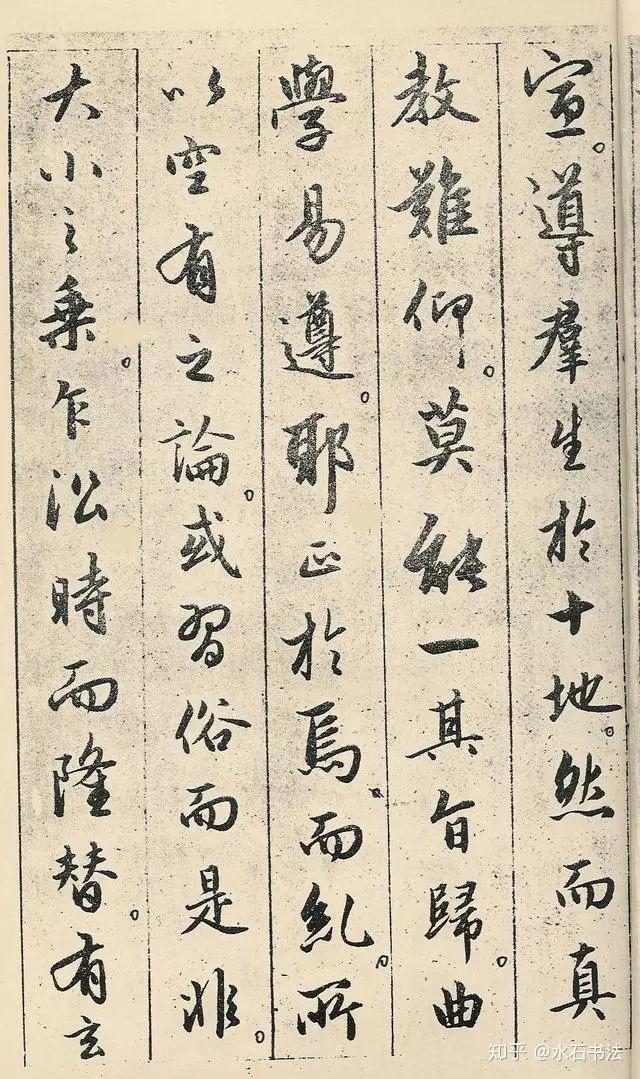 宣。導羣生於十地。然而真
教難仰。莫能一其旨歸。曲
學易遵。耶正於焉。而紏。所
以空有之論。或習俗而是非。
大小之乗。乍沿時而隆替。有玄
知乎 @水石书法